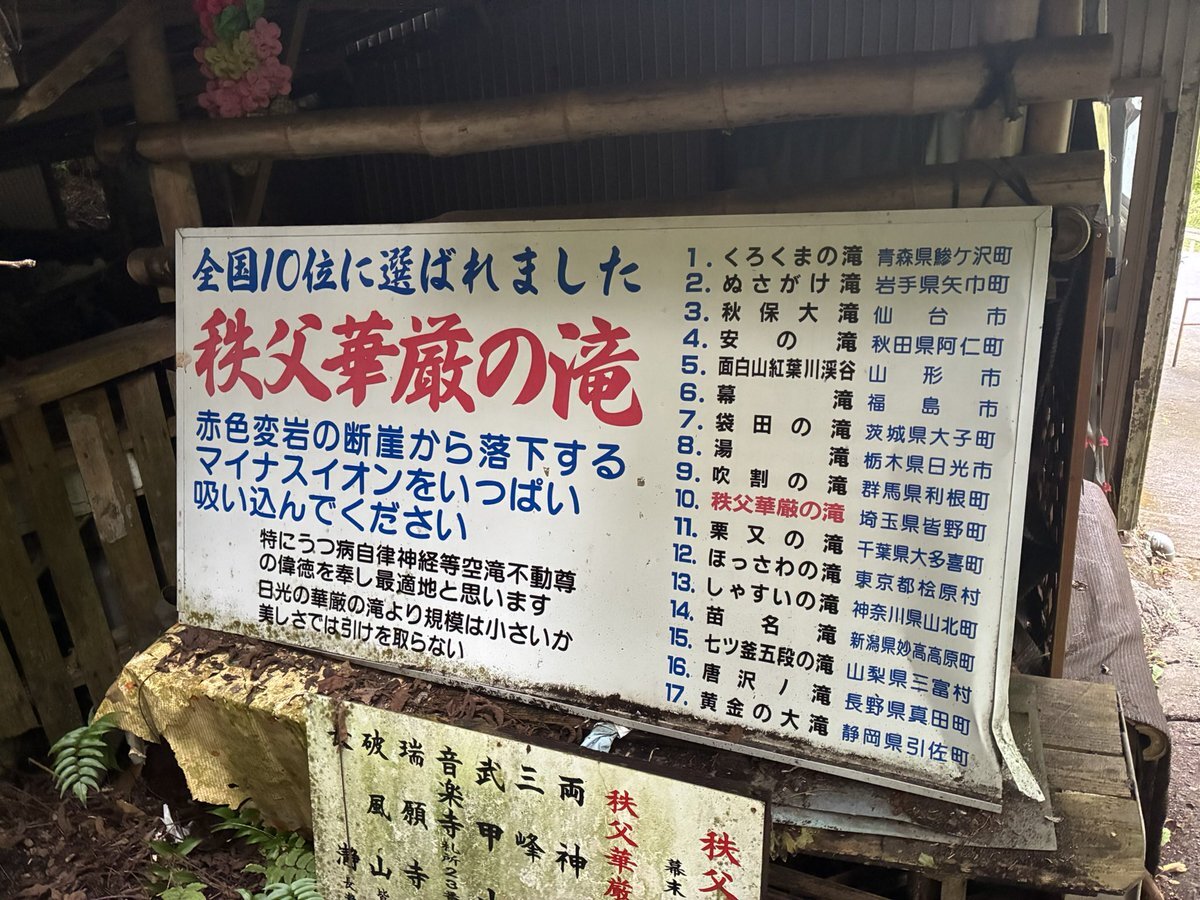 全国10位に選ばれました
秩父華厳の滝
赤色変岩の断崖から落下する
マイナスイオンをいっぱい
吸い込んでください
特にうつ病自律神経等空滝不動尊
の偉徳を奉し最適地と思います
日光の華厳の滝より規模は小さいか
美しさでは引けを取らない
1. くろくまの滝 青森県鰺ケ沢町
2. ぬさがけ滝 岩手県矢巾町
3. 秋保大滝 仙台市
4. 安の滝 秋田県阿仁町
5. 面白山紅葉川渓谷 山形市
6. 幕滝 福島市
7. 袋田の滝 茨城県大子町
8. 湯滝 栃木県日光市
9. 吹割の滝 群馬県利根町
10. 秩父華厳の滝 埼玉県皆野町
11. 粟又の滝 千葉県大多喜町
12. ほっさわの滝 東京都桧原村
13. しゃすいの滝 神奈川県山北町
14. 苗名滝 新潟県妙高高原町
15. 七ツ釜五段の滝 山梨県三富村
16. 唐沢ノ滝 長野県真田町
17. 黄金の大滝 静岡県引佐町
秩父
幕末
秩父華厳
両神
三峰
武甲
音楽寺札所23番
瑞願寺
破風山